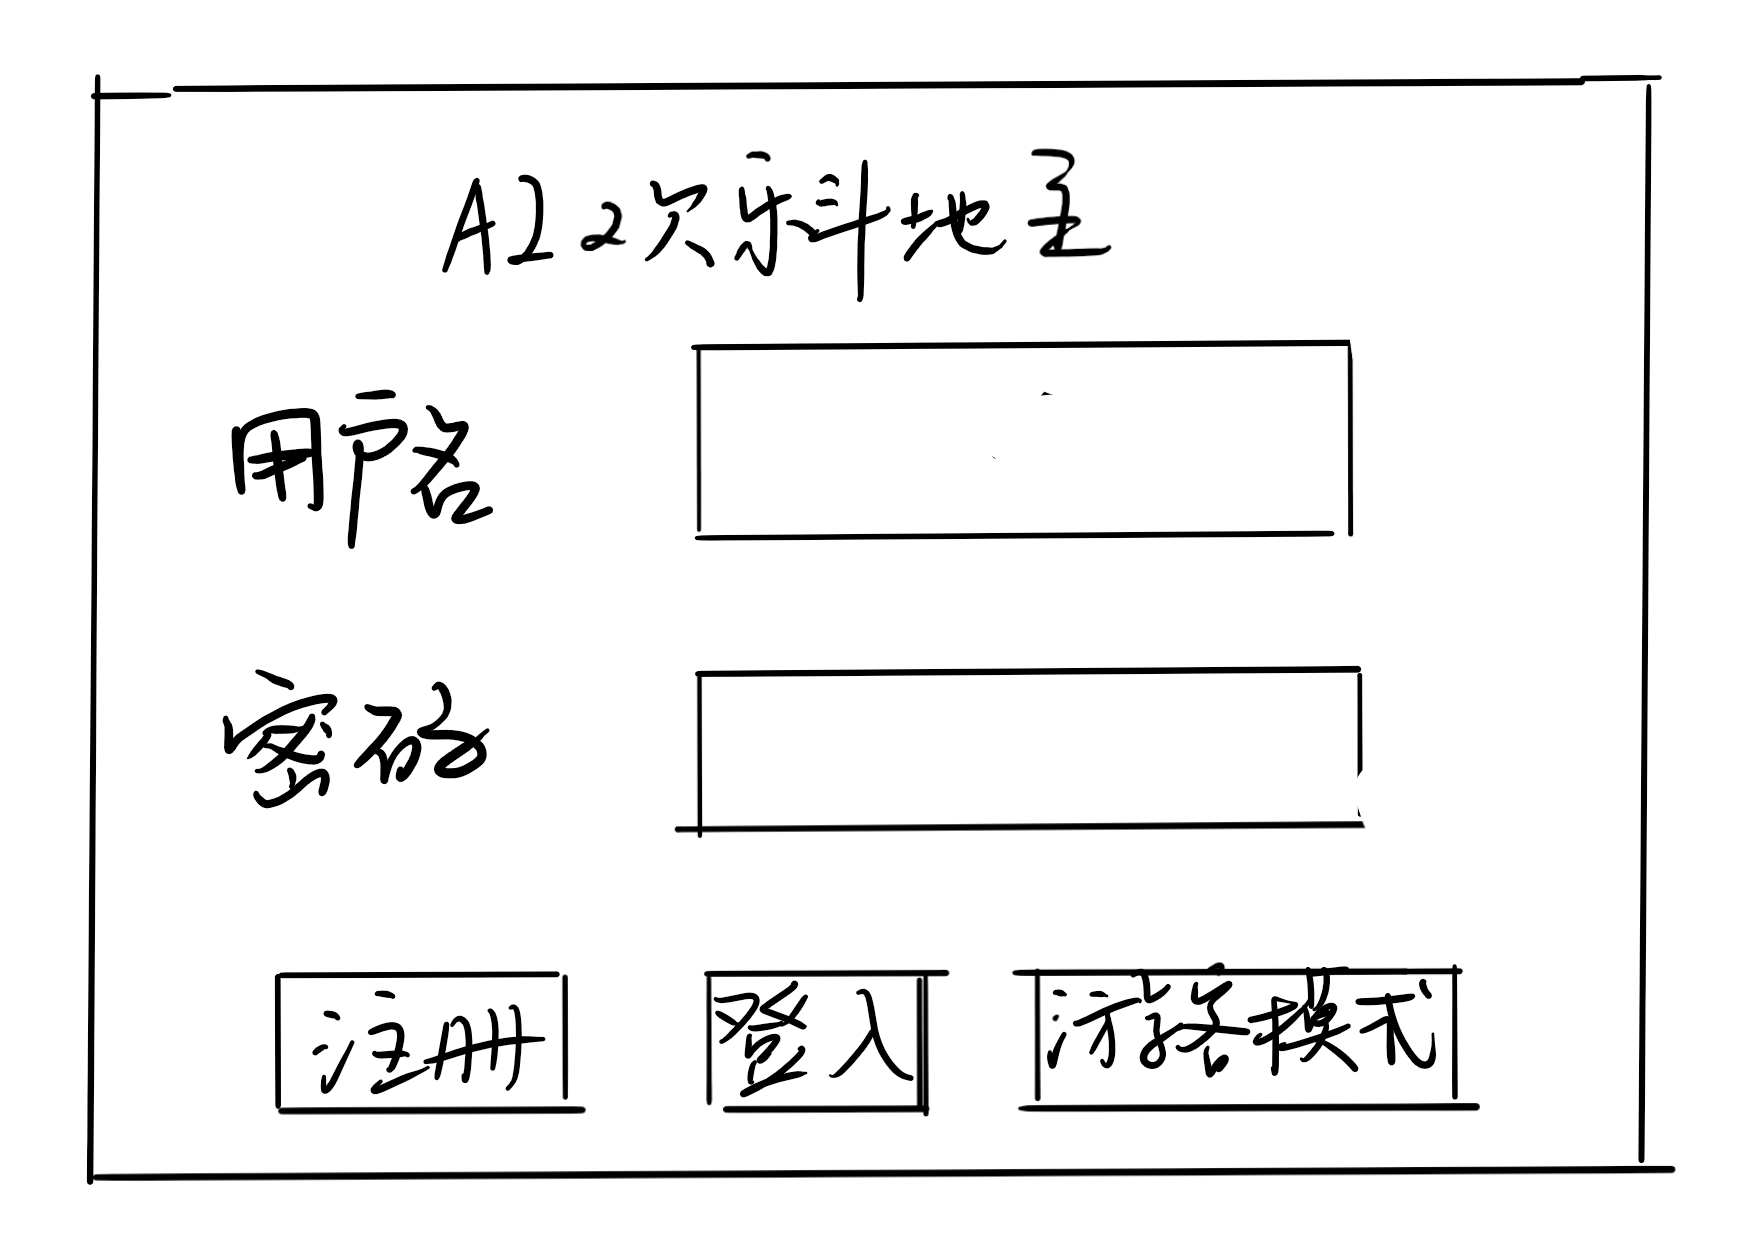 AI欢乐斗地主
用户名
密码
注册
登入
游客模式